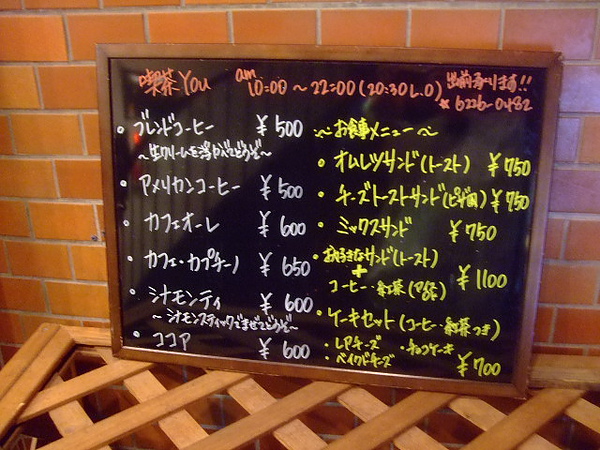 喫茶 You
am 10:00 ~ 22:00 (20:30 L.O)
出前承ります!!
☎ 6226-0482
・ブレンドコーヒー ¥500
~生クリームを浮かべてどうぞ~
・アメリカンコーヒー ¥500
・カフェオーレ ¥600
・カフェ・カプチーノ ¥650
・シナモンティ ¥600
~シナモンスティックでまぜてどうぞ~
・ココア ¥600
~お食事メニュー~
・オムレツサンド(トースト) ¥750
・チーズトーストサンド(ピザ風) ¥750
・ミックスサンド ¥750
・お好きなサンド(トースト)
+
コーヒー・紅茶 ¥1100
・ケーキセット(コーヒー・紅茶つき)
・レアチーズ ・チョコケーキ
・ベイクドチーズ ¥700